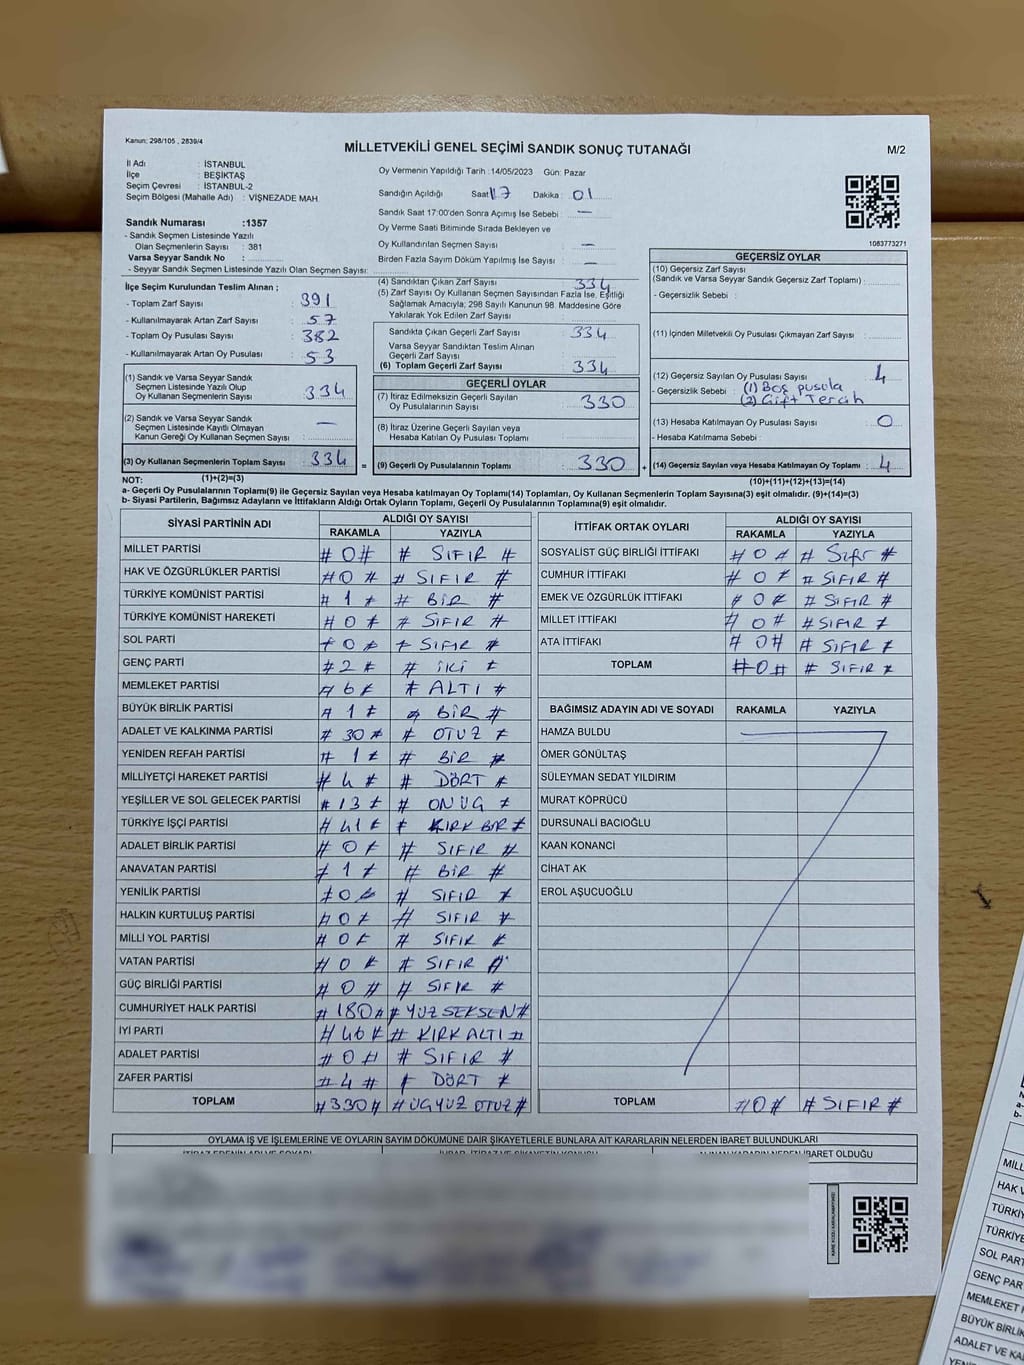 Kanun: 298/105 , 2839/4
MİLLETVEKİLİ GENEL SEÇİMİ SANDIK SONUÇ TUTANAĞI
M/2
İl Adı : İSTANBUL
İlçe : BEŞİKTAŞ
Seçim Çevresi : İSTANBUL-2
Seçim Bölgesi (Mahalle Adı) : VİŞNEZADE MAH.
Oy Vermenin Yapıldığı Tarih :14/05/2023 Gün: Pazar
Sandığın Açıldığı Saat 17 Dakika : 01
Sandık Saat 17:00'den Sonra Açımış İse Sebebi : —
Oy Verme Saati Bitiminde Sırada Bekleyen ve
Oy Kullandırılan Seçmen Sayısı : —
Birden Fazla Sayım Döküm Yapılmış İse Sayısı : —
1083773271
Sandık Numarası :1357
- Sandık Seçmen Listesinde Yazılı
Olan Seçmenlerin Sayısı : 381
Varsa Seyyar Sandık No :
- Seyyar Sandık Seçmen Listesinde Yazılı Olan Seçmen Sayısı:
İlçe Seçim Kurulundan Teslim Alınan ;
- Toplam Zarf Sayısı : 391
- Kullanılmayarak Artan Zarf Sayısı : 57
- Toplam Oy Pusulası Sayısı : 382
- Kullanılmayarak Artan Oy Pusulası : 53
(1) Sandık ve Varsa Seyyar Sandık
Seçmen Listesinde Yazılı Olup
Oy Kullanan Seçmenlerin Sayısı : 334
(2) Sandık ve Varsa Seyyar Sandık
Seçmen Listesinde Kayıtlı Olmayan
Kanun Gereği Oy Kullanan Seçmen Sayısı : —
(3) Oy Kullanan Seçmenlerin Toplam Sayısı : 334
(1)+(2)=(3)
(4) Sandıktan Çıkan Zarf Sayısı : 334
(5) Zarf Sayısı Oy Kullanan Seçmen Sayısından Fazla İse, Eşitliği
Sağlamak Amacıyla; 298 Sayılı Kanunun 98. Maddesine Göre
Yakılarak Yok Edilen Zarf Sayısı :
Sandıkta Çıkan Geçerli Zarf Sayısı : 334
Varsa Seyyar Sandıktan Teslim Alınan
Geçerli Zarf Sayısı :
(6) Toplam Geçerli Zarf Sayısı : 334
GEÇERLİ OYLAR
(7) İtiraz Edilmeksizin Geçerli Sayılan
Oy Pusulalarının Sayısı : 330
(8) İtiraz Üzerine Geçerli Sayılan veya
Hesaba Katılan Oy Pusulası Toplamı :
= (9) Geçerli Oy Pusulalarının Toplamı : 330 +
GEÇERSİZ OYLAR
(10) Geçersiz Zarf Sayısı
(Sandık ve Varsa Seyyar Sandık Geçersiz Zarf Toplamı) :
- Geçersizlik Sebebi :
(11) İçinden Milletvekili Oy Pusulası Çıkmayan Zarf Sayısı :
(12) Geçersiz Sayılan Oy Pusulası Sayısı : 4
- Geçersizlik Sebebi : (1) Boş pusula
(2) Çift Tercih
(13) Hesaba Katılmayan Oy Pusulası Sayısı : 0
- Hesaba Katılmama Sebebi :
(14) Geçersiz Sayılan veya Hesaba Katılmayan Oy Toplamı : 4
(10)+(11)+(12)+(13)=(14)
NOT:
a- Geçerli Oy Pusulalarının Toplamı(9) ile Geçersiz Sayılan veya Hesaba katılmayan Oy Toplamı(14) Toplamları, Oy Kullanan Seçmenlerin Toplam Sayısına(3) eşit olmalıdır. (9)+(14)=(3)
b- Siyasi Partilerin, Bağımsız Adayların ve İttifakların Aldığı Ortak Oyların Toplamı, Geçerli Oy Pusulalarının Toplamına(9) eşit olmalıdır.
SİYASİ PARTİNİN ADI ALDIĞI OY SAYISI
RAKAMLA YAZIYLA
MİLLET PARTİSİ # 0 # # SIFIR #
HAK VE ÖZGÜRLÜKLER PARTİSİ # 0 # # SIFIR #
TÜRKİYE KOMÜNİST PARTİSİ # 1 # # BİR #
TÜRKİYE KOMÜNİST HAREKETİ # 0 # # SIFIR #
SOL PARTİ # 0 # # SIFIR #
GENÇ PARTİ # 2 # # İKİ #
MEMLEKET PARTİSİ # 6 # # ALTI #
BÜYÜK BİRLİK PARTİSİ # 1 # # BİR #
ADALET VE KALKINMA PARTİSİ # 30 # # OTUZ #
YENİDEN REFAH PARTİSİ # 1 # # BİR #
MİLLİYETÇİ HAREKET PARTİSİ # 4 # # DÖRT #
YEŞİLLER VE SOL GELECEK PARTİSİ # 13 # # ONÜÇ #
TÜRKİYE İŞÇİ PARTİSİ # 41 # # KIRK BİR #
ADALET BİRLİK PARTİSİ # 0 # # SIFIR #
ANAVATAN PARTİSİ # 1 # # BİR #
YENİLİK PARTİSİ # 0 # # SIFIR #
HALKIN KURTULUŞ PARTİSİ # 0 # # SIFIR #
MİLLİ YOL PARTİSİ # 0 # # SIFIR #
VATAN PARTİSİ # 0 # # SIFIR #
GÜÇ BİRLİĞİ PARTİSİ # 0 # # SIFIR #
CUMHURİYET HALK PARTİSİ # 180 # # YÜZ SEKSEN #
İYİ PARTİ # 46 # # KIRK ALTI #
ADALET PARTİSİ # 0 # # SIFIR #
ZAFER PARTİSİ # 4 # # DÖRT #
TOPLAM # 330 # # ÜÇYÜZ OTUZ #
İTTİFAK ORTAK OYLARI ALDIĞI OY SAYISI
RAKAMLA YAZIYLA
SOSYALİST GÜÇ BİRLİĞİ İTTİFAKI # 0 # # Sıfır #
CUMHUR İTTİFAKI # 0 # # SIFIR #
EMEK VE ÖZGÜRLÜK İTTİFAKI # 0 # # SIFIR #
MİLLET İTTİFAKI # 0 # # SIFIR #
ATA İTTİFAKI # 0 # # SIFIR #
TOPLAM # 0 # # SIFIR #
BAĞIMSIZ ADAYIN ADI VE SOYADI RAKAMLA YAZIYLA
HAMZA BULDU
ÖMER GÖNÜLTAŞ
SÜLEYMAN SEDAT YILDIRIM
MURAT KÖPRÜCÜ
DURSUNALİ BACIOĞLU
KAAN KONANCİ
CİHAT AK
EROL AŞUCUOĞLU
TOPLAM # 0 # # SIFIR #
OYLAMA İŞ VE İŞLEMLERİNE VE OYLARIN SAYIM DÖKÜMÜNE DAİR ŞİKAYETLERLE BUNLARA AİT KARARLARIN NELERDEN İBARET BULUNDUKLARI
İTİRAZ EDENİN ADI VE SOYADI İHBAR, İTİRAZ VE ŞİKAYETİN KONUSU ALINAN KARARIN NEDEN İBARET OLDUĞU
MİLL
HAK V
TÜRKİY
TÜRKİYE
SOL PART
GENÇ PAR
MEMLEKET
BÜYÜK BİRLİK
ADALET VE KA